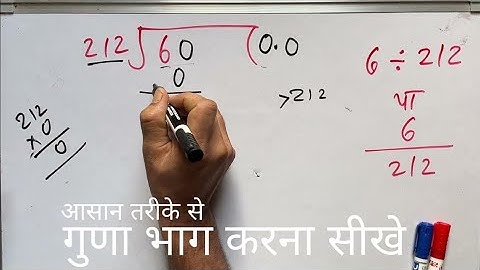 212 60 0.0
0
>212
6 ÷ 212
या
6
212
212
×0
0
आसान तरीके से
गुणा भाग करना सीखे